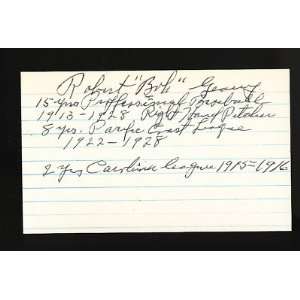 Robert "Bob" Geary
15 yrs Professional Baseball
1913-1928 Right Hand Pitcher
8 yrs. Pacific Coast League
1922-1928
2 yrs Carolina League 1915-1916